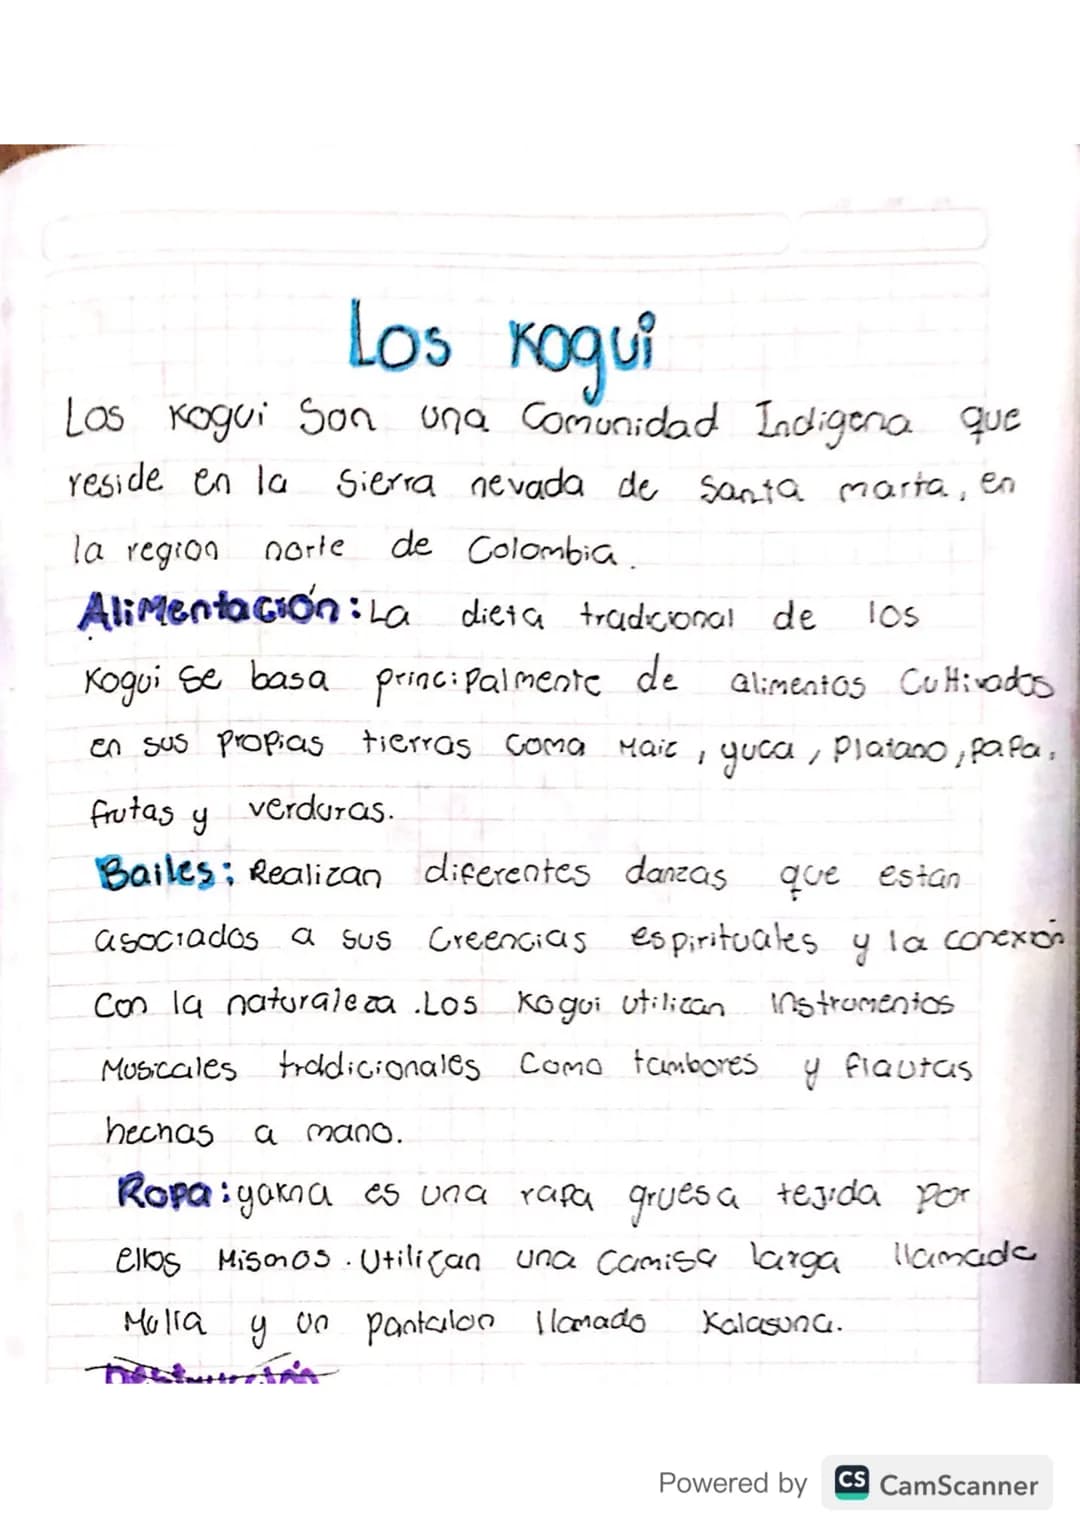 Los Kogui
Los Kogui Son una Comunidad Indigena que
reside en la Sierra nevada de Santa marta, en
la region norte de Colombia.
Alimentación: La dieta tradicional de los
Kogui se basa principalmente de alimentos Cultivados
en sus propias tierras como Maiz, yuca, Platano, papa,
frutas y verduras.
Bailes: Realizan diferentes danzas que estan
asociados a sus Creencias espirituales y la conexión
Con la naturaleza. Los Kogui utilizan instrumentos
Musicales tradicionales Como tambores y flautas
hechas a mano.
Ropa: yakna es una ropa gruesa tejida por
ellos Mismos. Utilizan una Camisa larga llamada
y un pantalon llamado Kalasuna.
Powered by CS CamScanner